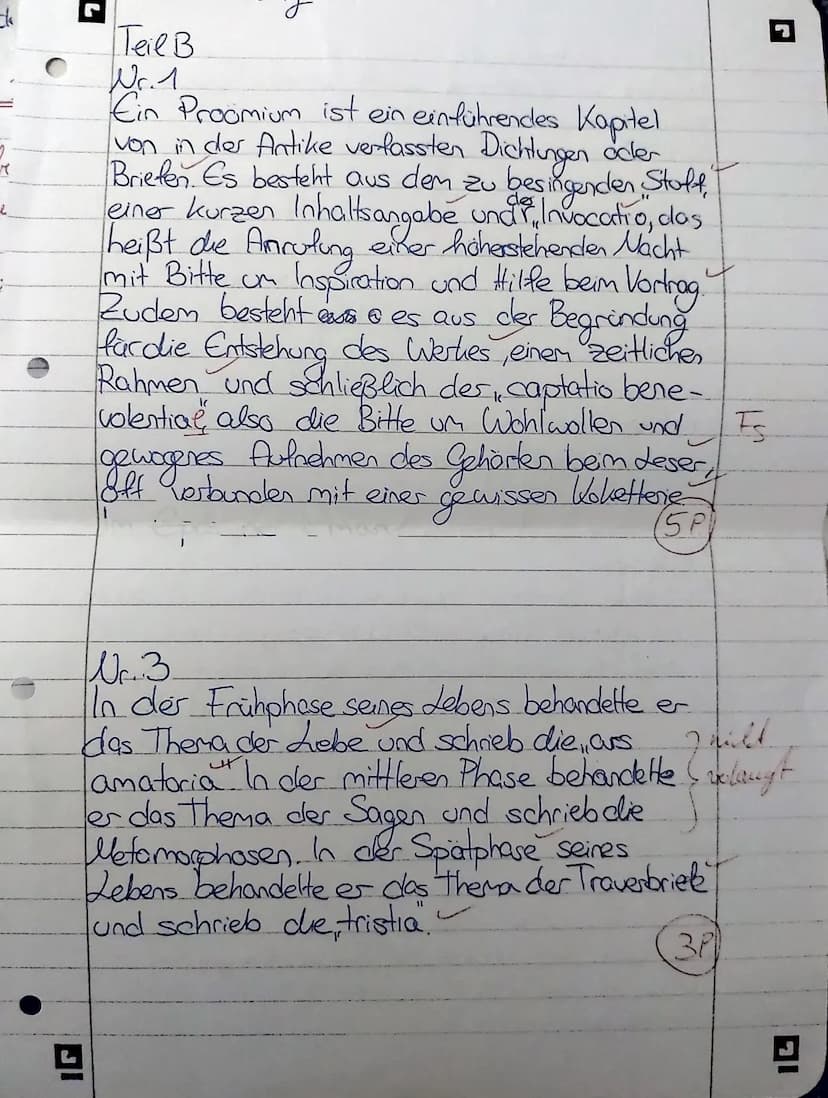 Teil B
Nr. 1
Ein Proömium ist ein einführendes Kapitel
von in der Antike verfassten Dichtungen oder
Briefen. Es besteht aus dem zu besingenden Stoff,
einer kurzen Inhaltsangabe und der „Invocatio", das
heißt die Anrufung einer höherstehenden Macht
mit Bitte um Inspiration und Hilfe beim Vortrag.
Zudem besteht es aus der Begründung
für die Entstehung des Werkes, einem zeitlichen
Rahmen und schließlich der „captatio bene-
volentiae" also die Bitte um Wohlwollen und
gewogenes Aufnehmen des Gehörten beim Leser,
oft verbunden mit einer gewissen Koketterie
5P
Nr. 3
In der Frühphase seines Lebens behandelte er
das Thema der Liebe und schrieb die „ars
amatoria". In der mittleren Phase behandelte
er das Thema der Sagen und schrieb die
Metamorphosen. In der Spätphase seines
Lebens behandelte er das Thema der Trauerbriefe
und schrieb die „tristia".
nicht
verlangt
3P